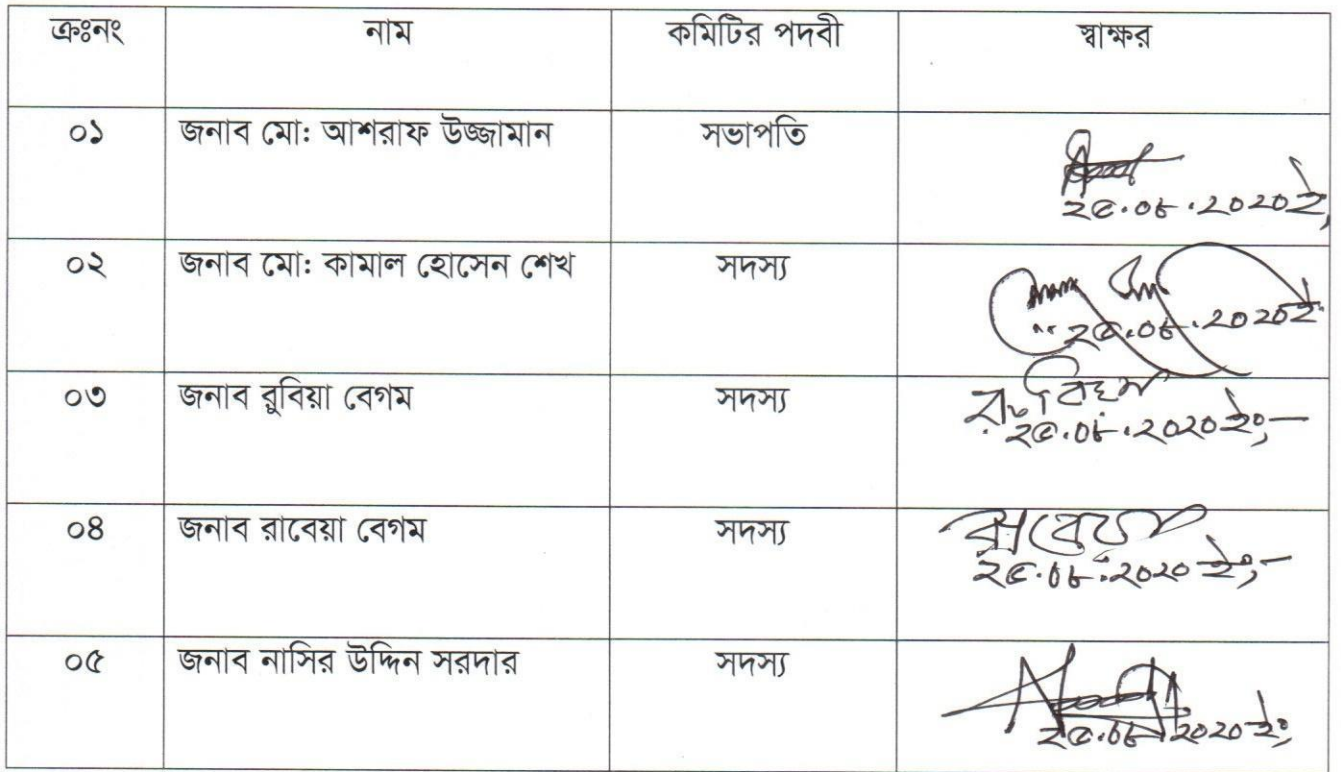 ক্রঃনং নাম কমিটির পদবী স্বাক্ষর
০১ জনাব মো: আশরাফ উজ্জামান সভাপতি
২৫.০৮.২০২০ইং
০২ জনাব মো: কামাল হোসেন শেখ সদস্য
২৫.০৮.২০২০ইং
০৩ জনাব রুবিয়া বেগম সদস্য
২৫.০৮.২০২০ইং
০৪ জনাব রাবেয়া বেগম সদস্য রাবেয়া
২৫.০৮.২০২০ইং
০৫ জনাব নাসির উদ্দিন সরদার সদস্য
২৫.০৮.২০২০ইং